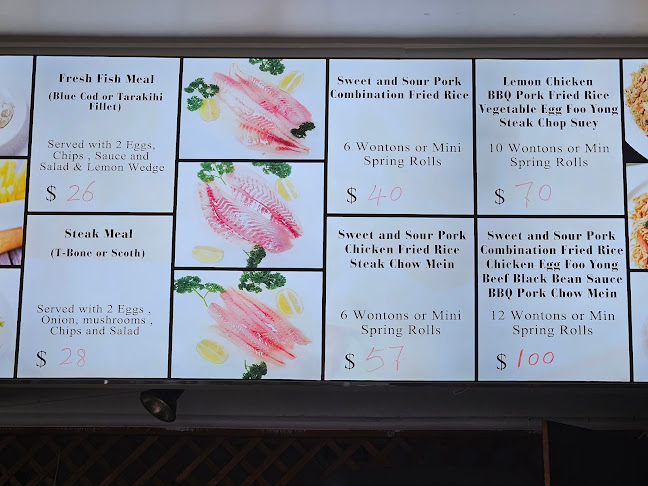 Fresh Fish Meal
(Blue Cod or Tarakihi
Fillet)
Served with 2 Eggs,
Chips , Sauce and
Salad & Lemon Wedge
$ 26
Steak Meal
(T-Bone or Scoth)
Served with 2 Eggs ,
Onion, mushrooms ,
Chips and Salad
$ 28
Sweet and Sour Pork
Combination Fried Rice
6 Wontons or Mini
Spring Rolls
$ 40
Sweet and Sour Pork
Chicken Fried Rice
Steak Chow Mein
6 Wontons or Mini
Spring Rolls
$ 57
Lemon Chicken
BBQ Pork Fried Rice
Vegetable Egg Foo Yong
Steak Chop Suey
10 Wontons or Min
Spring Rolls
$ 70
Sweet and Sour Pork
Combination Fried Rice
Chicken Egg Foo Yong
Beef Black Bean Sauce
BBQ Pork Chow Mein
12 Wontons or Min
Spring Rolls
$ 100